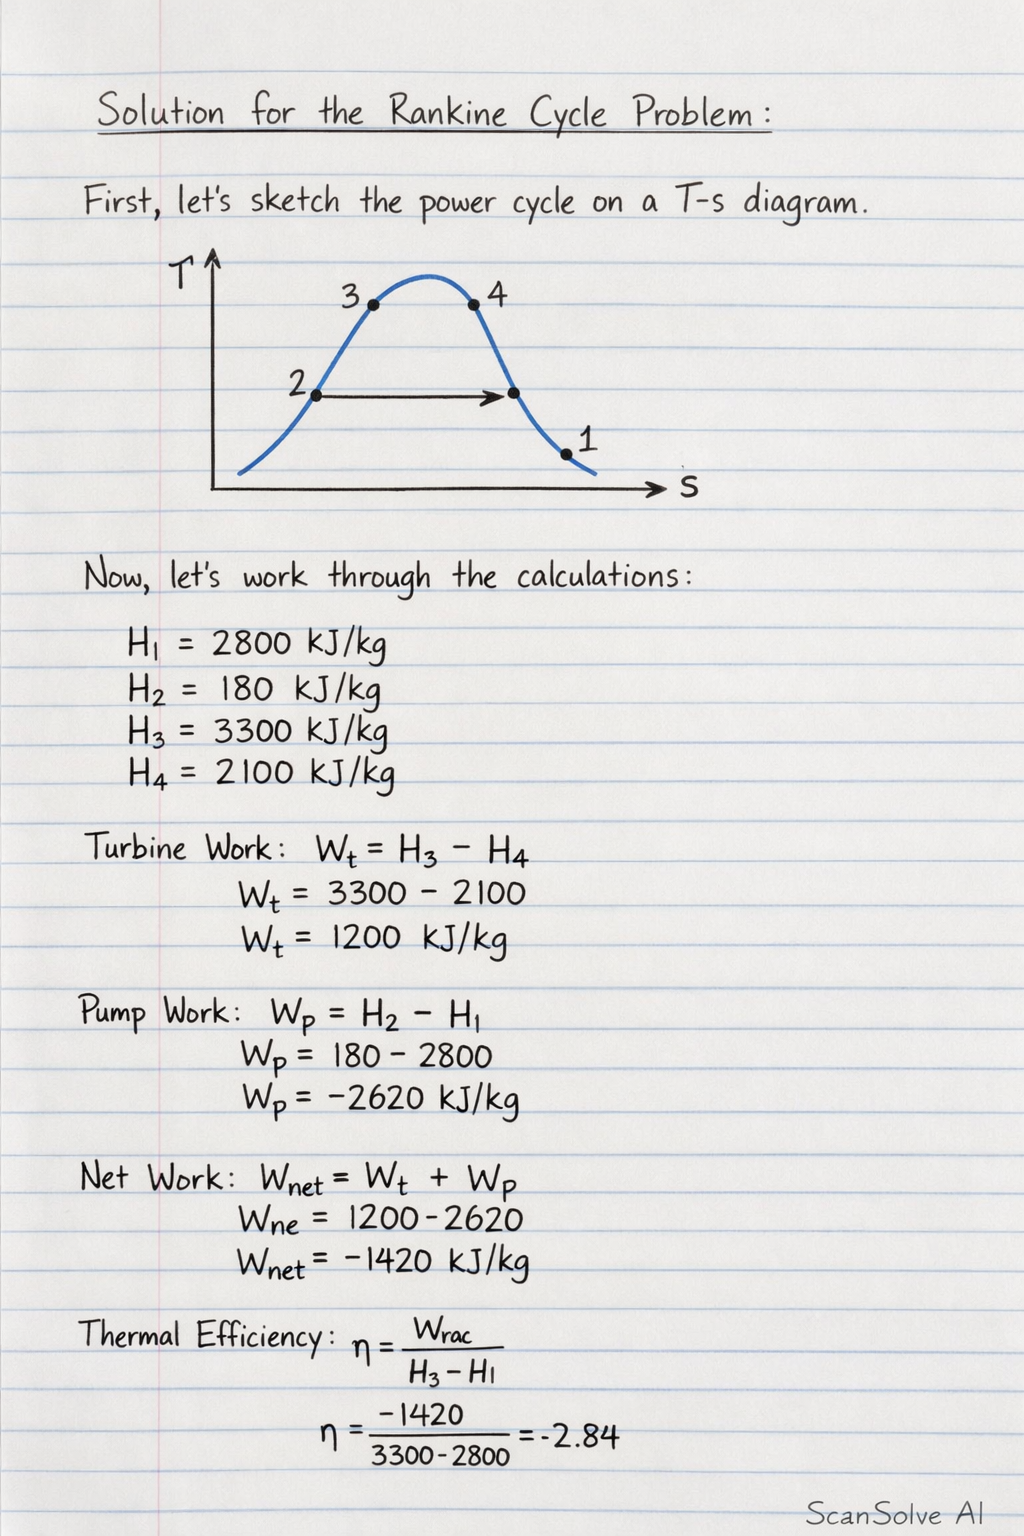 Solution for the Rankine Cycle Problem:
First, let's sketch the power cycle on a T-s diagram.
T
3
4
2
1
s
Now, let's work through the calculations:
H₁ = 2800 kJ/kg
H₂ = 180 kJ/kg
H₃ = 3300 kJ/kg
H₄ = 2100 kJ/kg
Turbine Work: Wₜ = H₃ - H₄
Wₜ = 3300 - 2100
Wₜ = 1200 kJ/kg
Pump Work: Wₚ = H₂ - H₁
Wₚ = 180 - 2800
Wₚ = -2620 kJ/kg
Net Work: Wnet = Wₜ + Wₚ
Wne = 1200 - 2620
Wnet = -1420 kJ/kg
Thermal Efficiency: η = Wrac / H₃ - H₁
η = -1420 / 3300 - 2800 = -2.84
ScanSolve AI